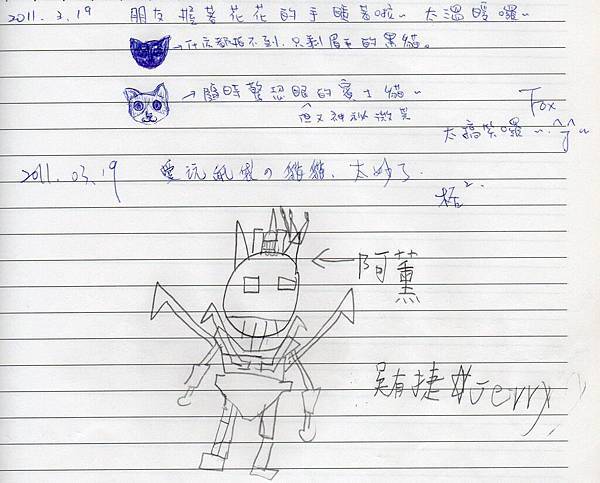 2011. 3. 19 朋友握著花花的手睡著啦~ 太溫暖囉~
→什麼都拍不到,只剩眉毛的黑貓。
→隨時驚恐眼的賓士貓~
但又神秘微笑
Fox
太搞笑囉~
2011. 03. 19 愛玩 の貓貓、太妙了.
←阿薰
吳有捷 Jerry